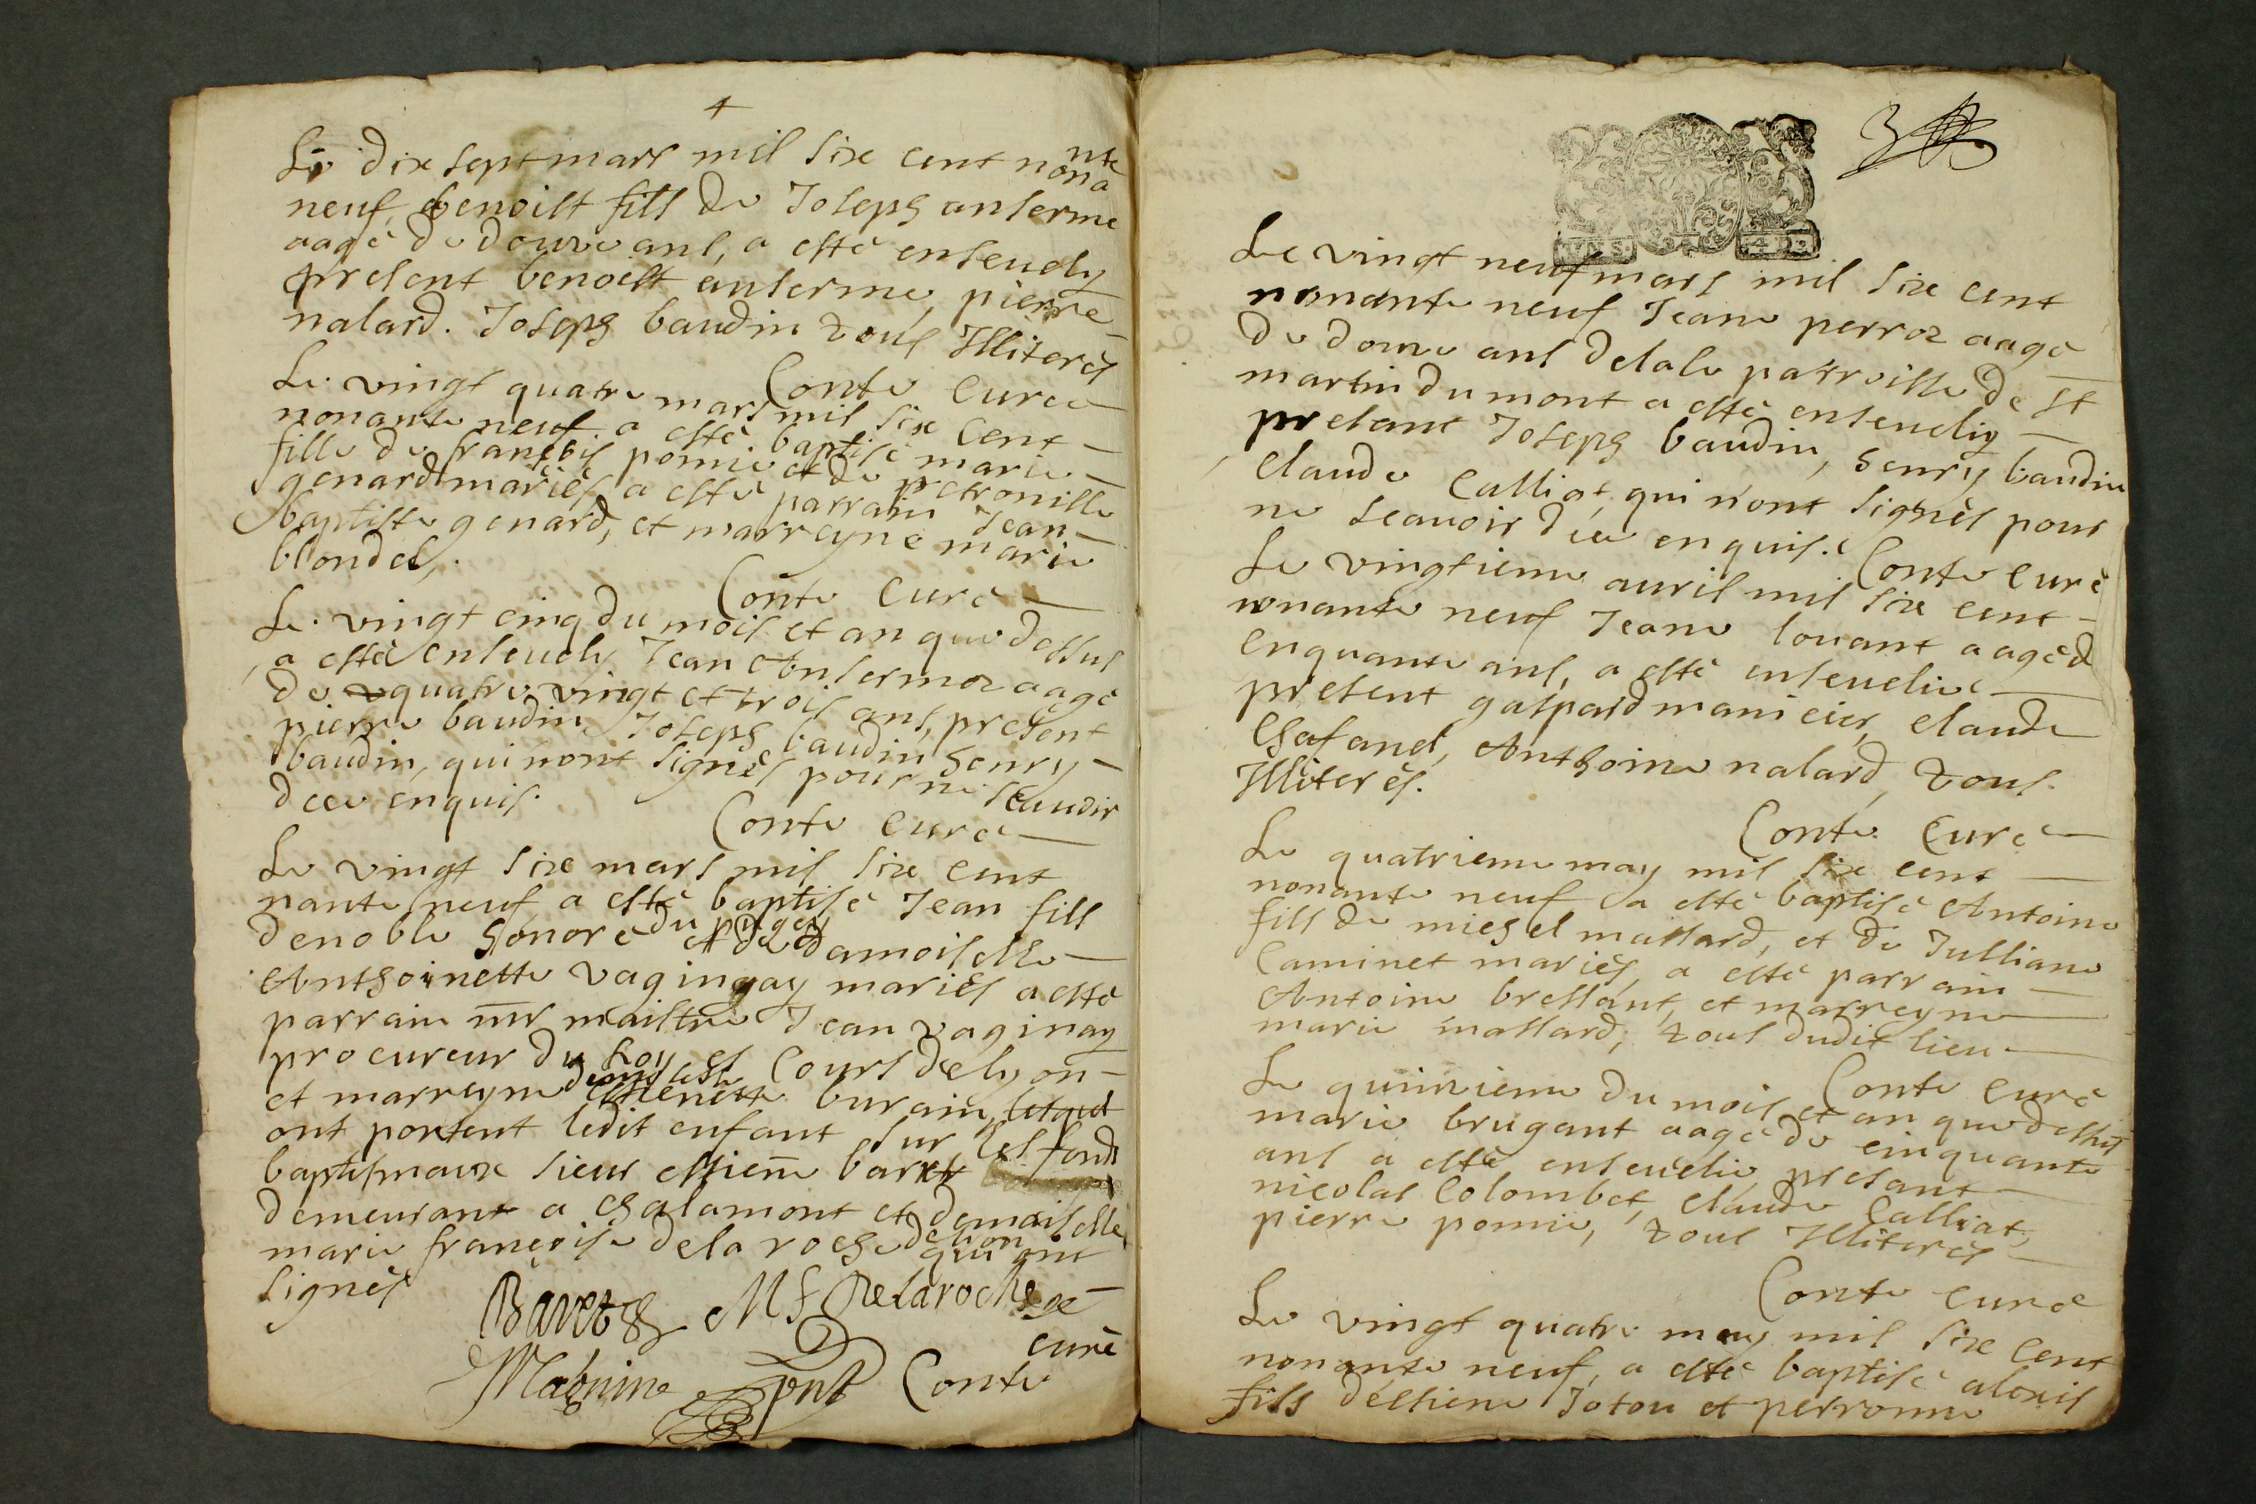 4
Le dix sept mars mil six cent nona
nte
neuf, benoist fils de Joseph anserme
aagé de douze ans, a esté enseuely
present benoist anserme, pierre
nalard. Joseph baudin tous Illiterés
Conte Curé
Le vingt quatre mars mil six cent
nonante neuf a esté baptisé marie
fille de françois pomie et de petronille
genard mariés, a esté parrain Jean
baptiste genard, et marreyne marie
blondel,
Conte Curé
Le vingt cinq du mois et an que dessus
a esté enseuely Jean Ansermoz aagé
de quatre vingt et trois ans, present
pierre baudin, Joseph baudin henry
baudin, qui nont signés pour ne scauoir
dece enquis.
Conte Curé
Le vingt six mars mil six cent
nante neuf a esté baptisé Jean fils
denoble honoré du puget et de damoiselle
Anthoinette vagingay mariés a esté
parrain mr maistre Jean vaginay
procureur du Roy es Cours de lyon
et marreyne burain
ont portent ledit enfant sur les fonds
baptismaux sieur estiene baret
demeurant a Chalamont et damoiselle
marie françoise dela roche qui ont
signés
Bavet M f Delaroche
curé
Conte
3
UN S. 4 D.
Le vingt neuf mars mil six cent
nonante neuf Jeane perroz aagé
de douze ans delale parroisse de st
martin du mont a esté enseuelig
presant Joseph baudin, henry baudin
Claude Calliat, qui nont signés pour
ne scauoir dece enquis.
Conte Curé
Le vingtieme auril mil six cent
nonante neuf Jeane louant aagéd
cinquante ans, a esté enseuelie
present gaspard manicier, Claude
Chafanel, Anthoine nalard, tous
Illiterés.
Conte Curé
Le quatrieme may mil six cent
nonante neuf a esté baptisé Antoine
fils de michel massard, et de Julliane
Caminet mariés, a esté parrain
Antoine bressant, et marreyne
marie massard, tous dudit lieu
Conte Curé
Le quinzieme du mois et an que dessus
marie brugant aagé de cinquante
ans a esté enseuelie, presant
nicolas Colombet, Claude Calliat
pierre pomie, tous Illiterés
Conte Curé
Le vingt quatre may mil six cent
nonante neuf, a esté baptisé alexis
fils d'estiene Joton et perronne